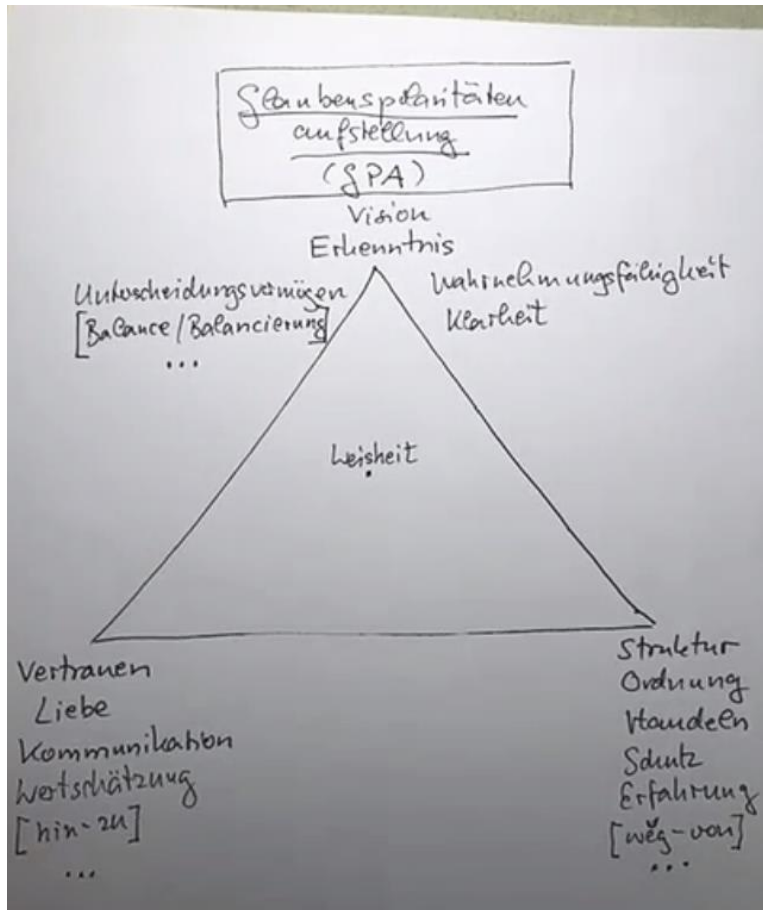 Glaubenspolaritäten
aufstellung
(GPA)
Vision
Erkenntnis
Unterscheidungsvermögen
[Balance/Balancierung]
...
Wahrnehmungsfähigkeit
Klarheit
Weisheit
Vertrauen
Liebe
Kommunikation
Wertschätzung
[hin-zu]
...
Struktur
Ordnung
Handeln
Schutz
Erfahrung
[wĕg-von]
...